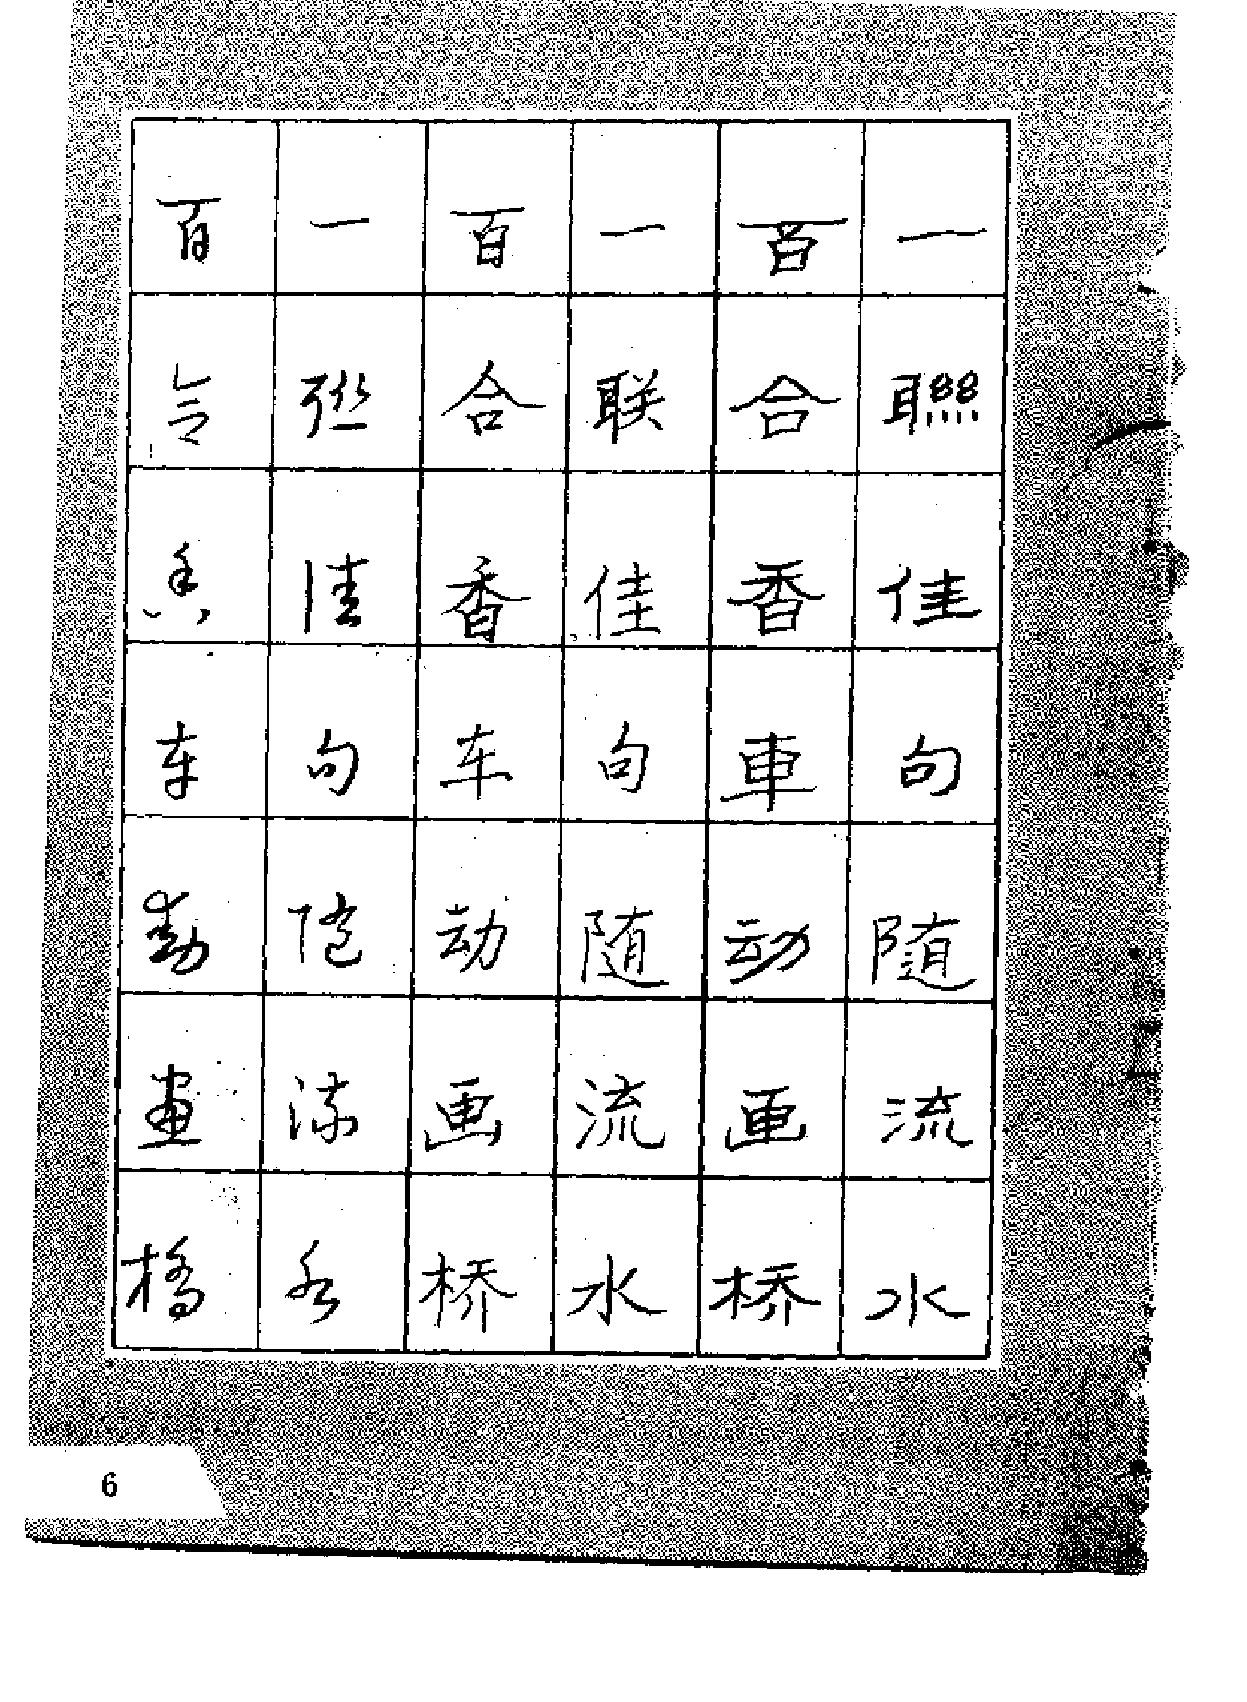 一聯佳句随流水
百合香車动画桥
一联佳句随流水
百合香车动画桥
一联佳句随流水
百合香车動畫橋
6